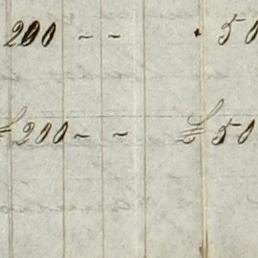 200 - - . 50
£ 200 - - £ 50